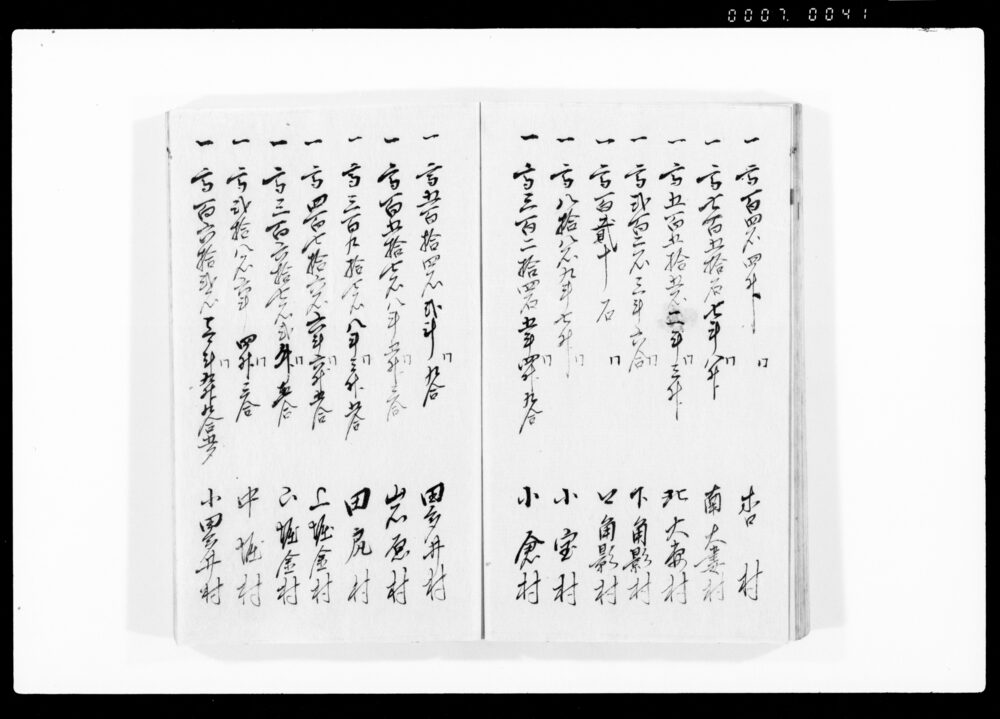 0007. 0041
一 高百四石四斗 杏村
一 高七百五拾石七斗八升 南大妻村
一 高五百五拾五石二斗三升 北大妻村
一 高弐百二石三斗六合 下角影村
一 高百弐十石 口角影村
一 高八拾八石九斗七升 小室村
一 高三百二拾四石五斗四升九合 小倉村
一 高五百拾四石弐斗九合 田多井村
一 高百五拾七石八斗五升三合 岩原村
一 高三百九拾七石八斗三升五合 田尻村
一 高四百七拾六石六斗六升五合 上堀金村
一 高三百六拾七石弐斗 下堀金村
一 高弐拾八石六斗四升三合 中堀村
一 高百六拾弐石三斗五升九合 小田井村